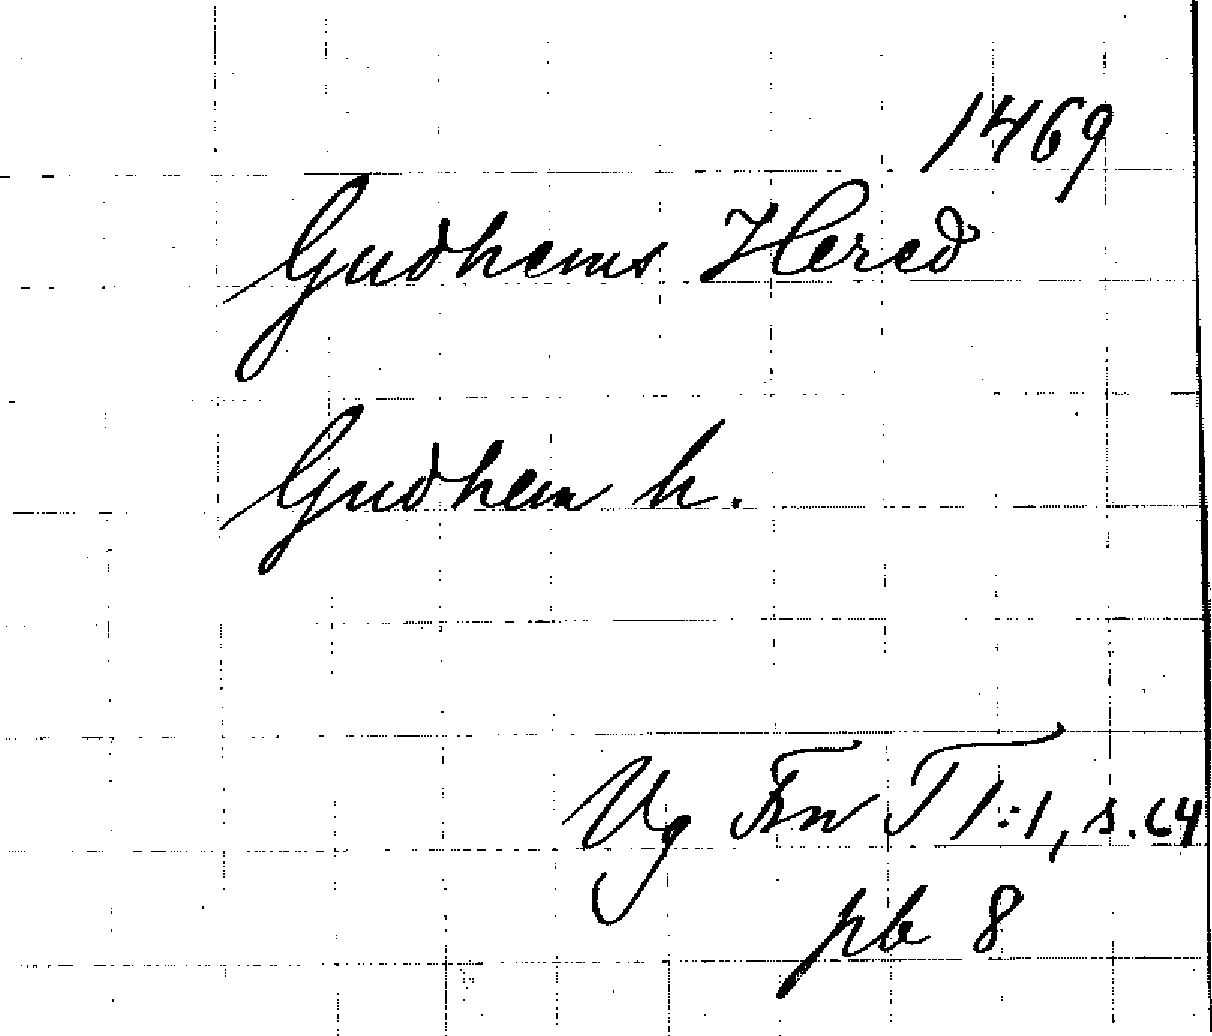 1469
Gudhems Hered
Gudhem h.
Vg Fnr T 1:1, s. 64
pb 8